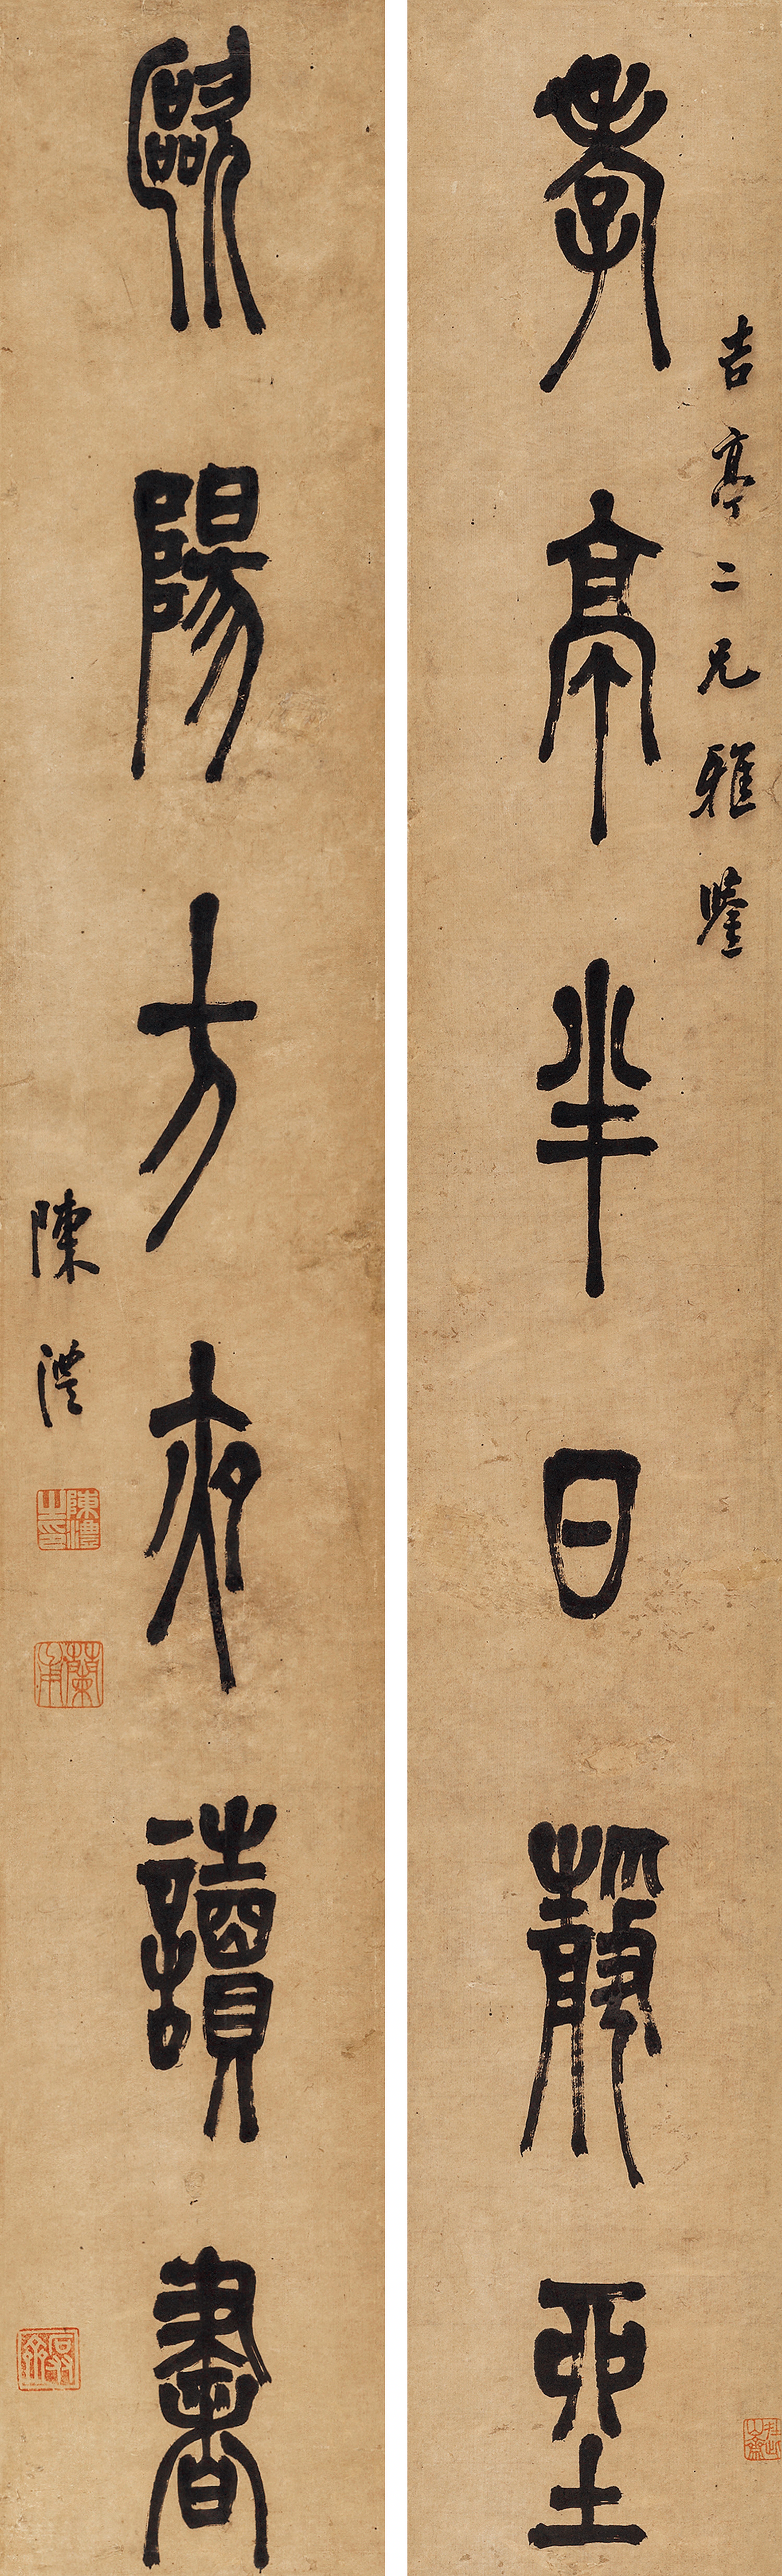 吉亭二兄雅鑒
孝亭半日靜坐
歐陽方夜讀書
陳澧
陳澧之印
蘭甫